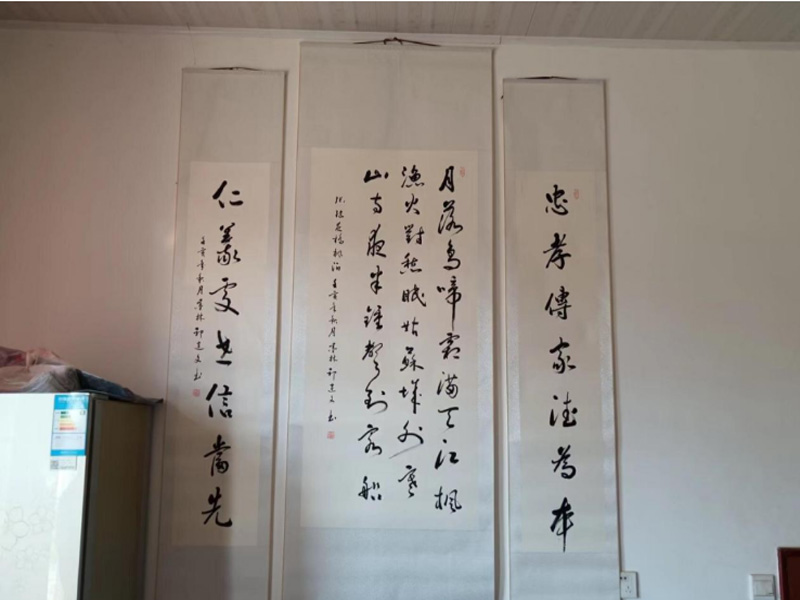 忠孝傳家德為本
月落烏啼霜滿天江楓
漁火對愁眠姑蘇城外寒
山寺夜半鐘聲到客船
張繼楓橋夜泊 壬寅年秋月 文書
仁義處世信當先
壬寅年秋月 文書